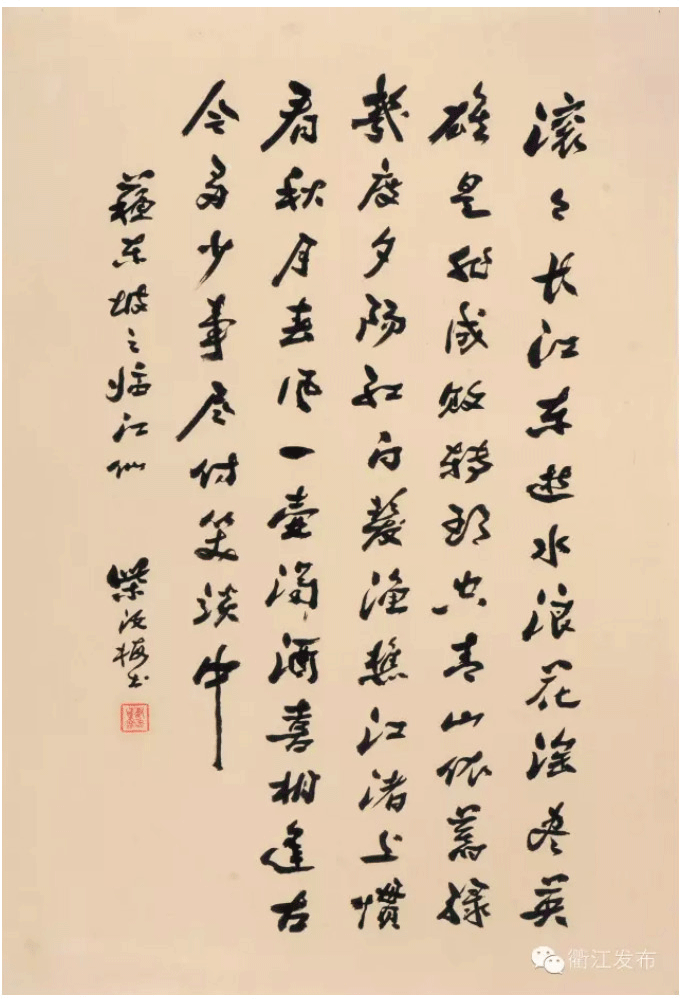 滚々长江东逝水浪花淘尽英
雄是非成敗转头空青山依舊绿
幾度夕阳红白发渔樵江渚上惯
看秋月春风一壶濁酒喜相逢古
今多少事尽付笑谈中
蘇东坡之临江仙
柴汝梅书
衢江发布